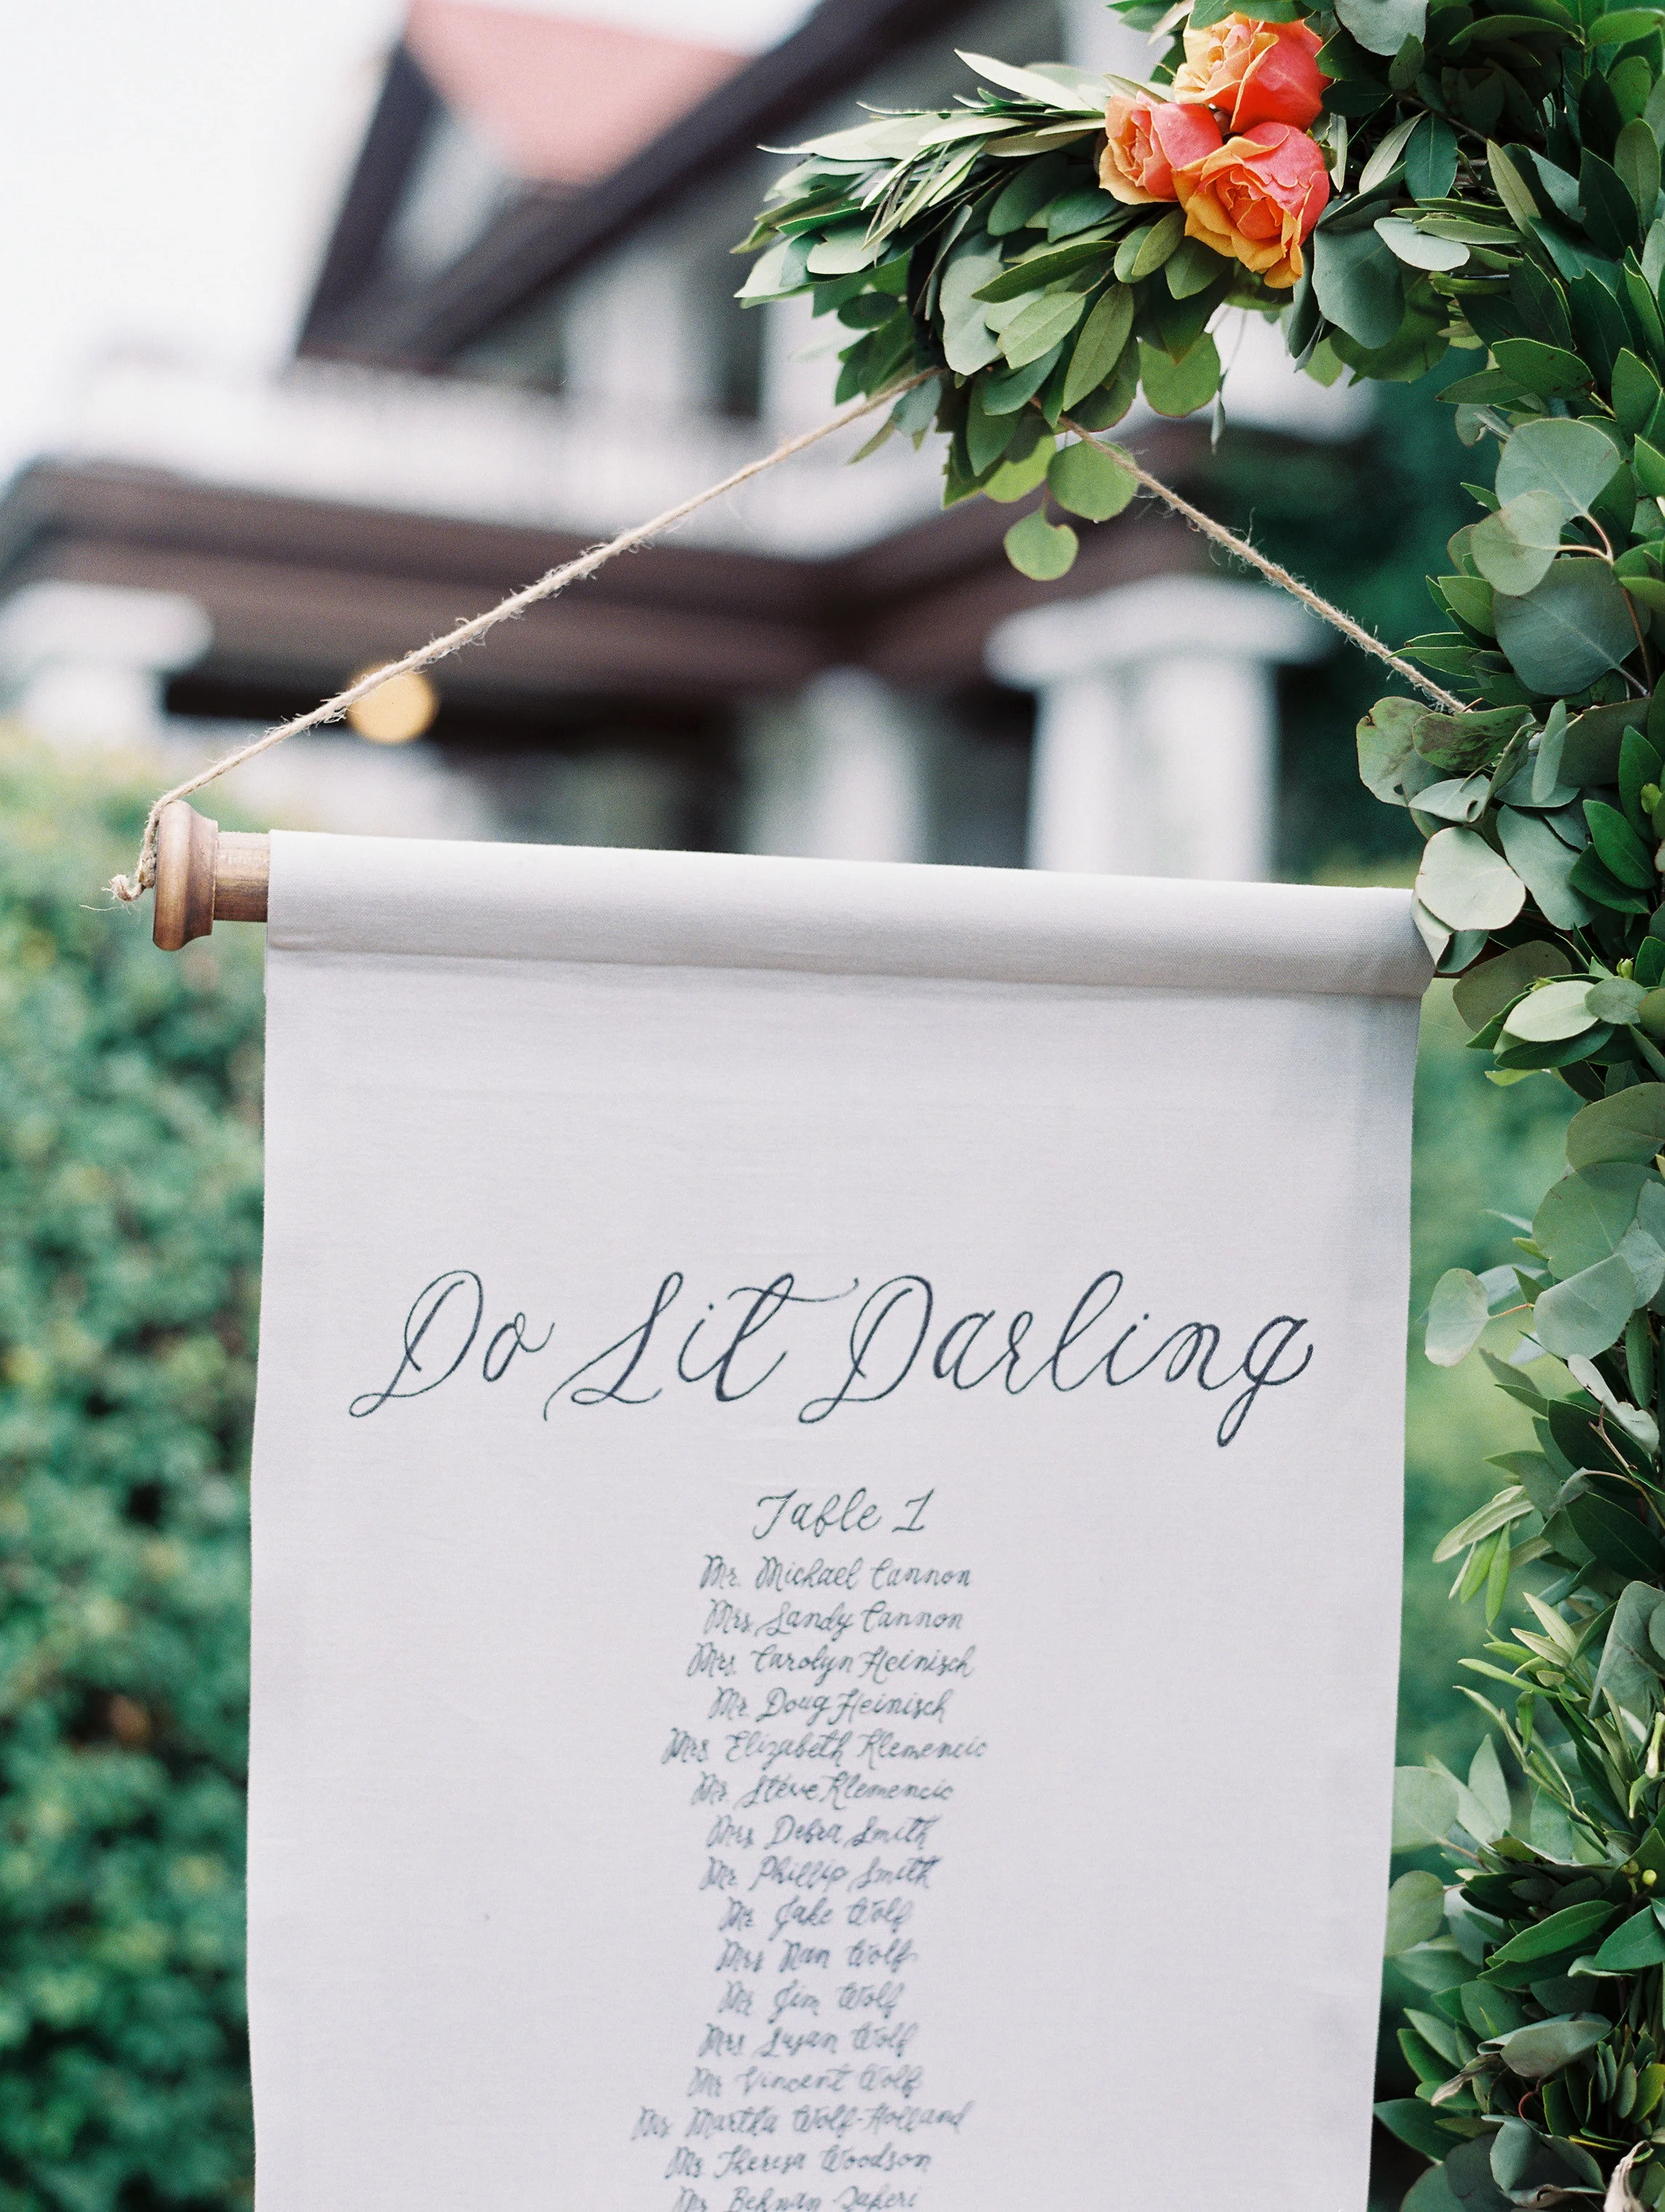 Do Sit Darling
Table 1
Mr. Michael Cannon
Mrs. Sandy Cannon
Mrs. Carolyn Heinisch
Mr. Doug Heinisch
Mrs. Elizabeth Klemencic
Mr. Steve Klemencic
Mrs Debra Smith
Mr. Phillip Smith
Mr. Jake Wolf
Mrs Nan Wolf
Mr Jim Wolf
Mrs Susan Wolf
Mr Vincent Wolf
Martha Wolf-Holland
Ms Theresa Woodson
Mr. Behnan